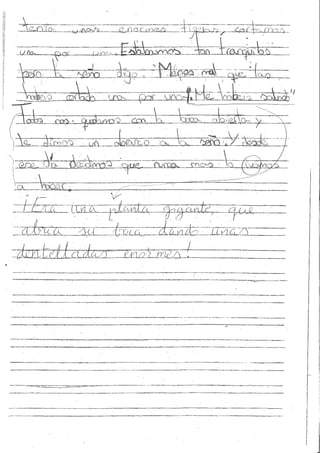 tenía unas enormes tijeras, cortamos
una por una. Estábamos tan tranquilos
pero la seño digo: "Menos mal que las
habeis cortado una por una. ¡Me habeis salvado"
Todos nos quedamos con la boca abierta y
le dimos un abrazo a la seño. Y desde
ese día decidimos que nunca mas la
a hacer.
¡Era una planta gigante, que
abría su boca dando unas
dentelladas enormes!